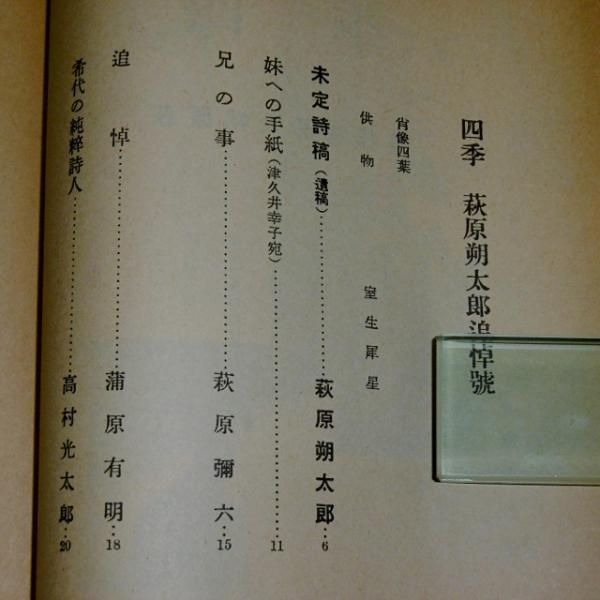 四季 萩原朔太郎追悼號
肖像四葉
供物 室生犀星
未定詩稿(遺稿)……萩原朔太郎…6
妹への手紙(津久井幸子宛)……11
兄の事……萩原彌六…15
追悼……蒲原有明…18
希代の純粹詩人……高村光太郎…20